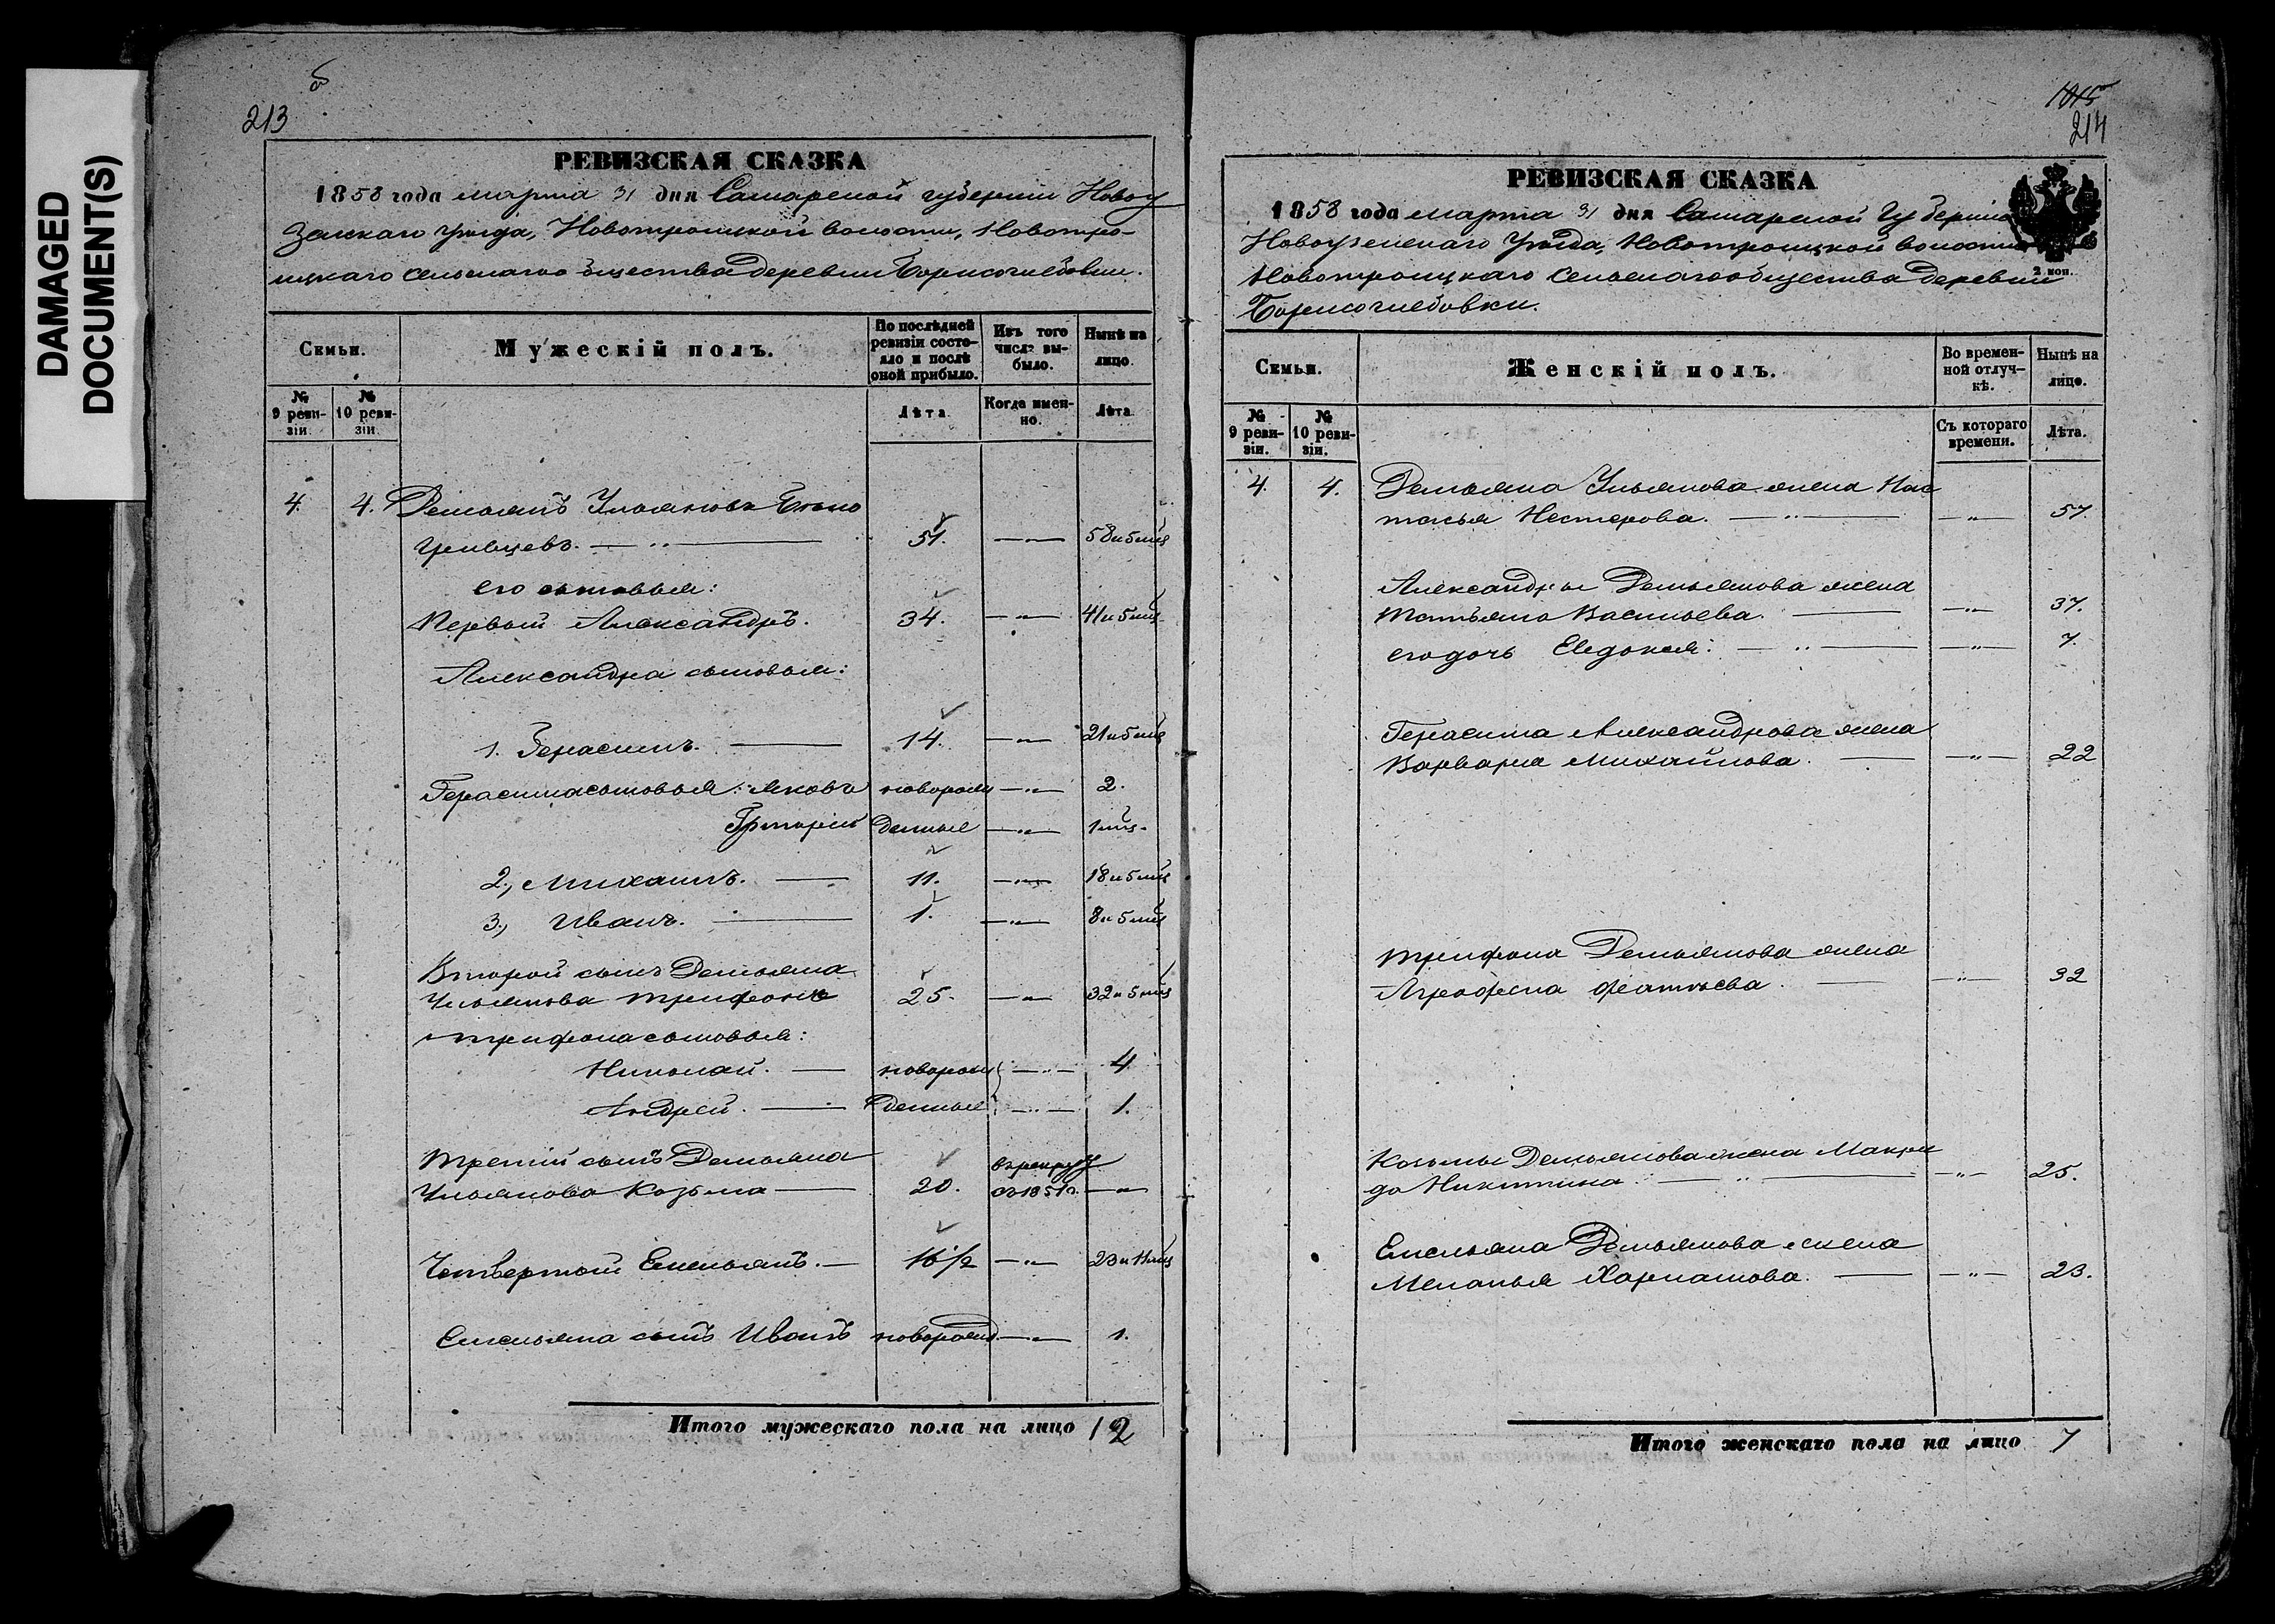 DAMAGED
DOCUMENT(S)
213
РЕВИЗСКАЯ СКАЗКА
1858 года марта 31 дня Самарской губернии Новоу
зенскаго уезда, Новотроицкой волости, Новотро-
ицкаго сельскаго общества деревни Борисоглебовки.
Семьи.
Мужескій полъ.
По послѣдней ревизіи состояло и послѣ оной прибыло.
Изъ того числа выбыло.
Нынѣ на лицо.
№ 9 ревизіи.
№ 10 ревизіи.
Лѣта.
Когда именно.
Лѣта.
4. 4. Демьянъ Ульяновъ
51. 58 и 5 мѣц
его сыновья:
Первый Александръ. 34. 41 и 5 мѣц
Александра сыновья:
1. Герасимъ. 14. 21 и 5 мѣц
Герасима сыновья: Яковъ новорож 2.
Григорій денные 1 мѣц.
2., Михаилъ. 11. 18 и 5 мѣц
3., Иванъ. 1. 8 и 5 мѣц
Второй сынъ Демьяна
Ульянова Трифонъ 25. 32 и 5 мѣц
Трифона сыновья:
Николай. новорож 4
Андрей. денные 1.
Третій сынъ Демьяна в рекруту
Ульянова Козьма 20. съ 1851 г.
Четвертый Емельянъ. 16 1/2 23 и 11 мѣц
Емельяна сынъ Иванъ новорожд. 1.
Итого мужескаго пола на лицо 12
214
РЕВИЗСКАЯ СКАЗКА
1858 года марта 31 дня Самарской Губерніи
Новоузенскаго Уезда, Новотроицкой волости
Новотроицкаго сельскаго общества деревни
Борисоглебовки.
2 коп.
Семьи.
Женскій полъ.
Во временной отлучкѣ.
Нынѣ на лицо.
№ 9 ревизіи.
№ 10 ревизіи.
Съ котораго времени.
Лѣта.
4. 4. Демьяна Ульянова жена Нас
тасья Нестерова. 57.
Александры Демьянова жена
Татьяна Васильева. 37.
его дочь Евдокия. 7.
Герасима Александрова жена
Варвара Михайлова. 22
Трифона Демьянова жена
Аграфена 32
Козьмы Демьянова жена Макри
да Никитина. 25.
Емельяна Демьянова жена
Меланья Харлашова. 23.
Итого женскаго пола на лицо 7